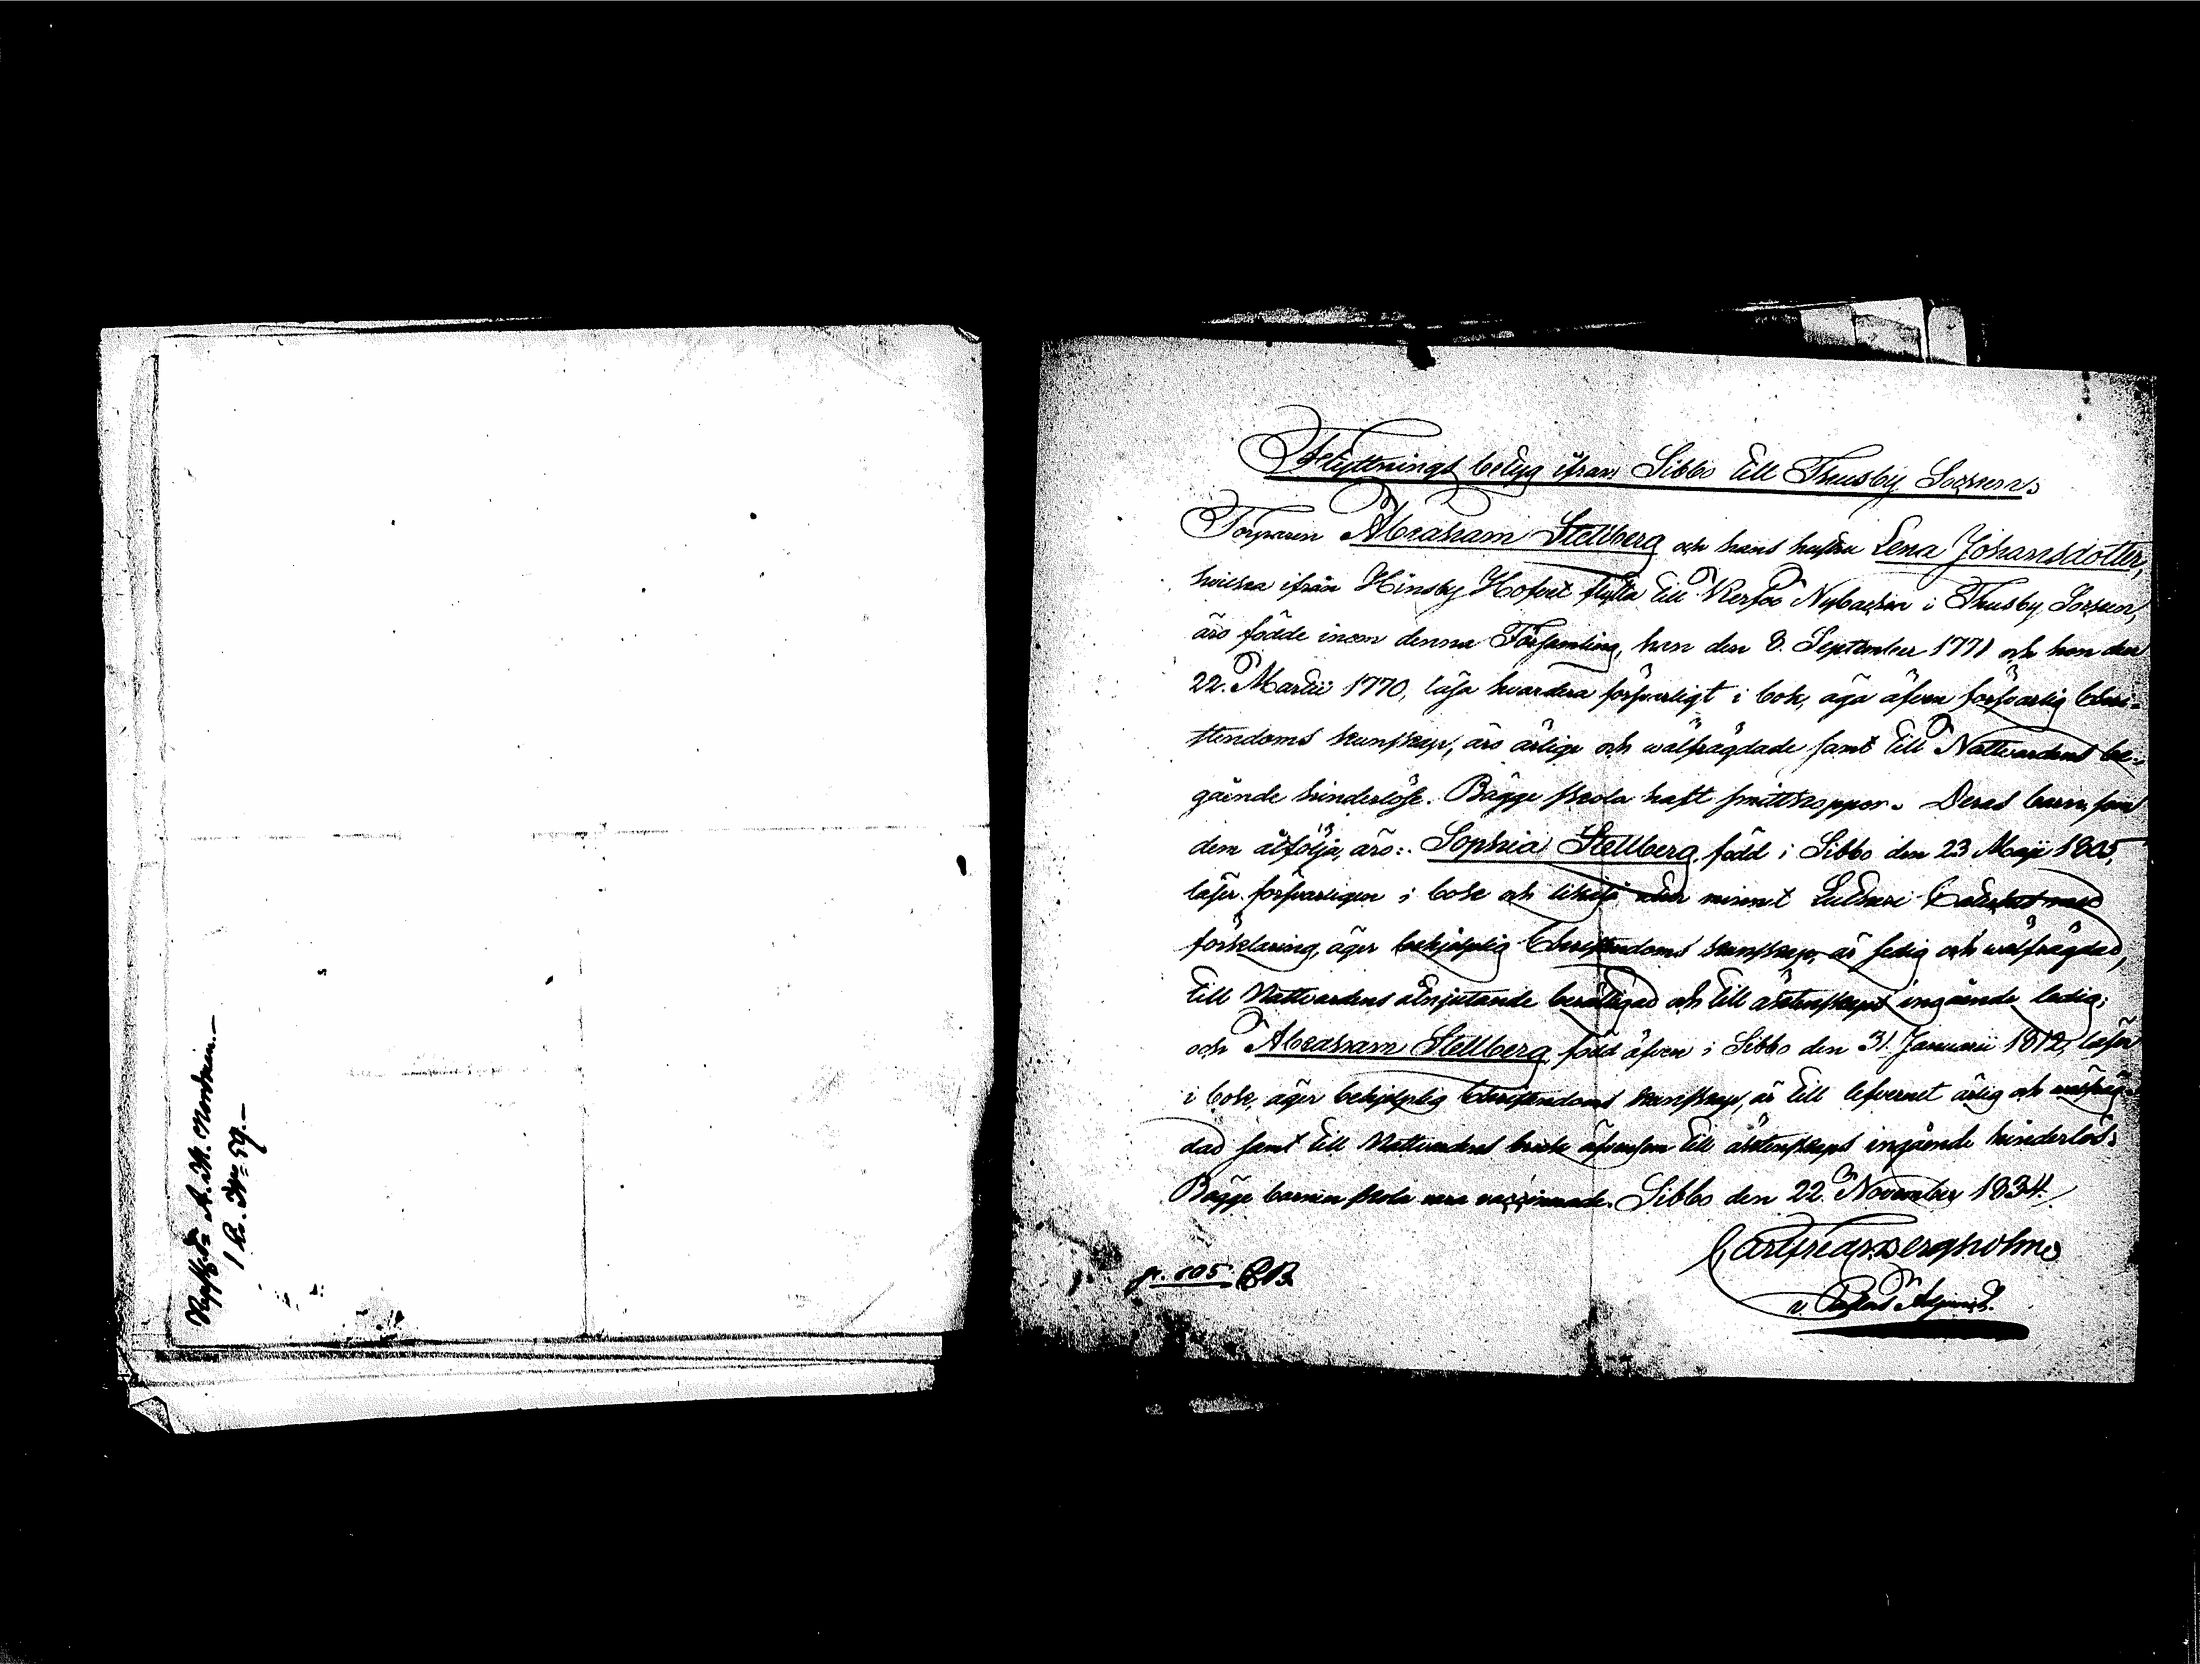 A. W. Nordman.
1 Kr. No 59.
Flyttnings betyg ifrån Sibbo till Thusby Socken.
Torparen Abraham Stellberg och hans hustru Lena Johansdotter,
hvilka ifrån Hinsby Hofvet flytta till Kerfoo Nybacka i Thusby Socken,
äro födde inom denna Församling, han den 8. September 1771 och hon den
22. Martii 1770, läsa hvardera försvarligt i bok, äga äfven försvarlig Chri-
stendoms kunskap, äro ärlige och wälfrägdade samt till Nattvardens be-
gående hinderlöse. Bägge skola haft smittkoppor. Deras barn, som
dem åtfölja, äro: Sophia Stellberg, född i Sibbo den 23 Maji 1805,
läser försvarligen i bok och likaså utur minnet Lutheri Cateches med
förklaring, äger behjelplig Christendoms kunskap, är fredig och wälfrägdad,
till Nattvardens åtnjutande berättigad och till äktenskaps ingående ledig;
och Abraham Stellberg, född äfven i Sibbo den 31. Januarii 1812, läser
i bok, äger behjelplig Christendoms kunskap, är till lefvernet ärlig och wälfräg-
dad samt till Nattvardens bruk äfvensom till äktenskaps ingående hinderlös.
Bägge barnen skola vara vaccinerade. Sibbo den 22. November 1834.
Carl Fredr. Bergholm
v. Pastors Adjunct.
p. 105. CB